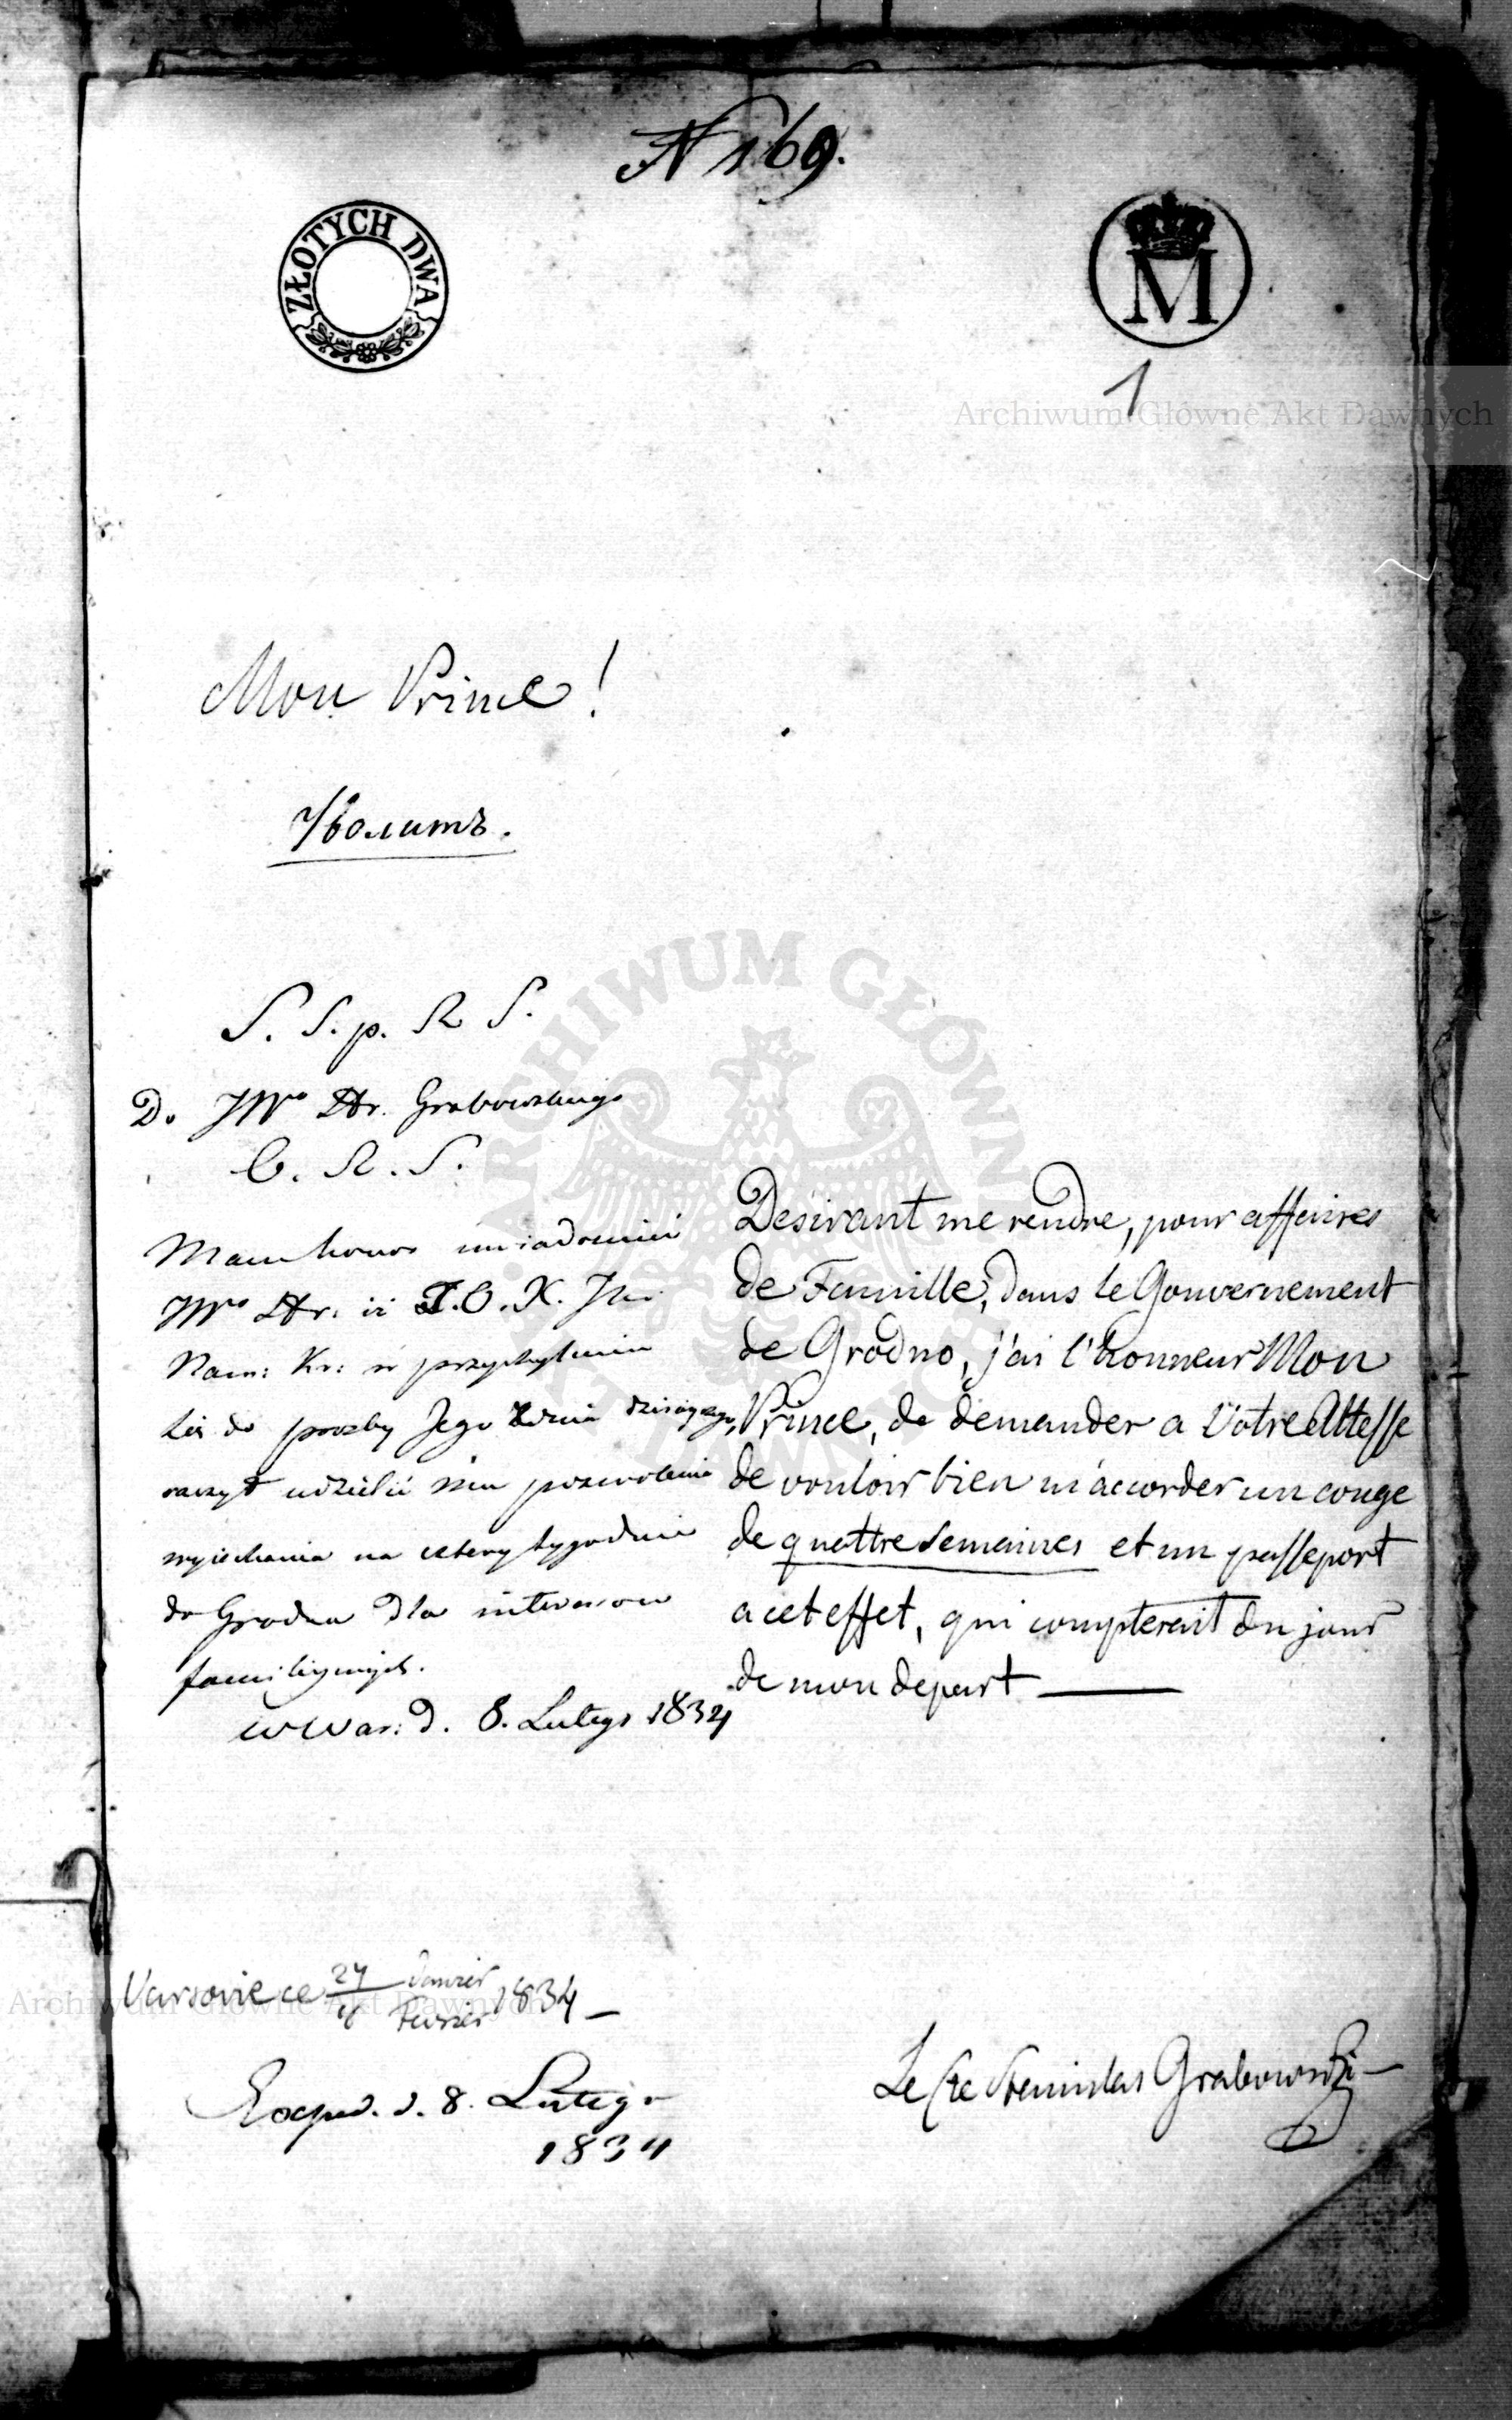 N 169.
ZŁOTYCH DWA
M
1
Archiwum Główne Akt Dawnych
Mon Prince!
Уволитъ.
S. S. p. R S.
Do JWo Hr. Grabowskiego
C. R. S.
Mam honor uwiadomić
JWo Hr. iż J.O.X. Jmć
Nam: Kr: w przychyleniu
się do prośby Jego z dnia dzisiejszego,
raczył udzielić mu pozwolenie
wyjechania na cztery tygodnie
do Grodna dla interesow
familijnych.
w War: d. 8. Lutego 1834
Desirant me rendre, pour affaires
de Famille, dans le Gouvernement
de Grodno, j'ai l'honneur Mon
Prince, de demander a Votre Altesse
de vouloir bien m'accorder un conge
de quattre Semaines et un passeport
a cet effet, qui compterait du jour
de mon depart —
Varsovie ce 27 Janvier 1834 —
8 Fevrier
Le Cte Stanislas Grabowski —
Exped. d. 8. Lutego
1834
ARCHIWUM GŁÓWNE AKT DAWNYCH
Archiwum Główne Akt Dawnych